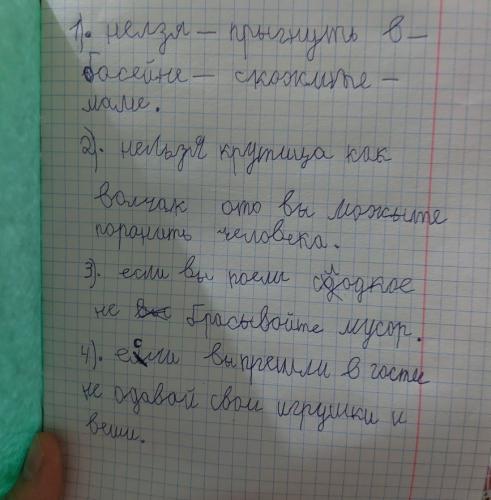 1). нелзя - прыгнуть в -
басейне - скожите -
маме.
2). нельзя крутица как
волчак ото вы можыте
поранить человека.
3). если вы поели слодкое
не брасывойте мусор.
4). если выпрешли в гости
не одавай свои игрушки и
веши.